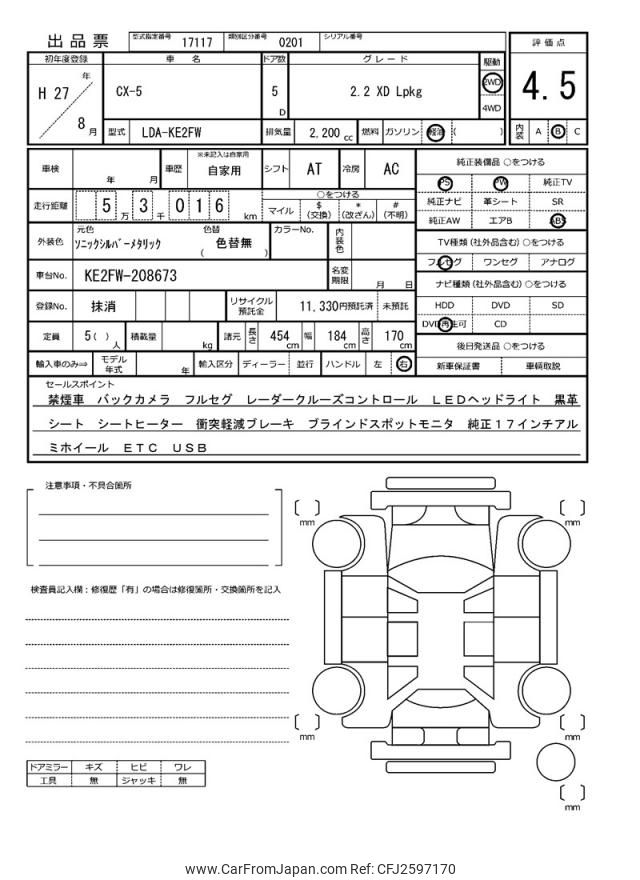 出品票 型式指定番号 17117 類別区分番号 0201 シリアル番号
初年度登録 車名 ドア数 グレード 駆動 評価点
H 27 年 8 月 CX-5 5 D 2.2 XD Lpkg 2WD 4WD 4.5
型式 LDA-KE2FW 排気量 2,200 cc 燃料 ガソリン 軽油 ( ) 内装 A B C
車検 年 月 車歴 ※未記入は自家用 自家用 シフト AT 冷房 AC 純正装備品 ○をつける
PS PW 純正TV
走行距離 5 万 3 千 0 1 6 km ○をつける マイル $ (交換) * (改ざん) # (不明)
純正ナビ 革シート SR
純正AW エアB ABS
外装色 元色 ソニックシルバーメタリック 色替 ( 色替無 ) カラーNo. 内装色
TV種類 (社外品含む) ○をつける
フルセグ ワンセグ アナログ
車台No. KE2FW-208673 名変期限 月 日
ナビ種類 (社外品含む) ○をつける
登録No. 抹消 リサイクル預託金 11,330円預託済 未預託
HDD DVD SD
DVD再生可 CD
定員 5 ( ) 人 積載量 kg 諸元 長さ 454 cm 幅 184 cm 高さ 170 cm
後日発送品 ○をつける
輸入車のみ⇒ モデル年式 年 輸入区分 ディーラー 並行 ハンドル 左 右
新車保証書 車輌取説
セールスポイント
禁煙車 バックカメラ フルセグ レーダークルーズコントロール LEDヘッドライト 黒革
シート シートヒーター 衝突軽減ブレーキ ブラインドスポットモニタ 純正17インチアル
ミホイール ETC USB
注意事項・不具合箇所
検査員記入欄：修復歴「有」の場合は修復箇所・交換箇所を記入
[ ] mm [ ] mm
[ ] mm [ ] mm
[ ] mm
ドアミラー キズ ヒビ ワレ
工具 無 ジャッキ 無
www.CarFromJapan.com Ref: CFJ2597170